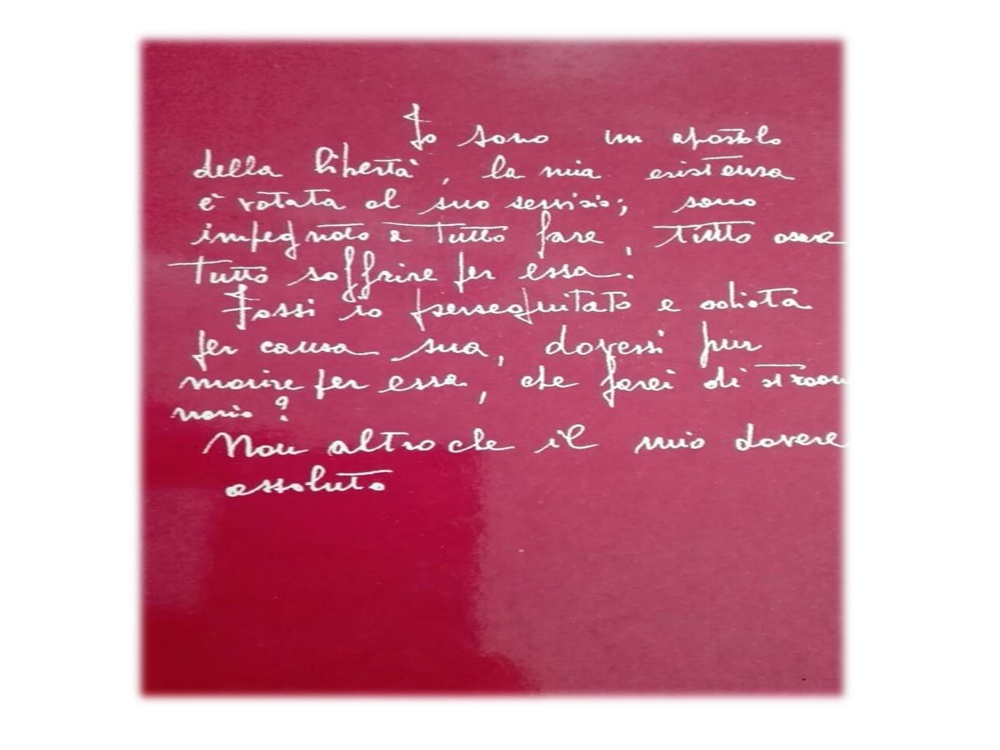 Io sono un apostolo
della libertà, la mia esistenza
è votata al suo servizio; sono
impegnato a tutto fare, tutto osare
tutto soffrire per essa.
Fossi io perseguitato e odiato
per causa sua, dovessi pur
morire per essa, che farei di straor
nario?
Non altro che il mio dovere
assoluto